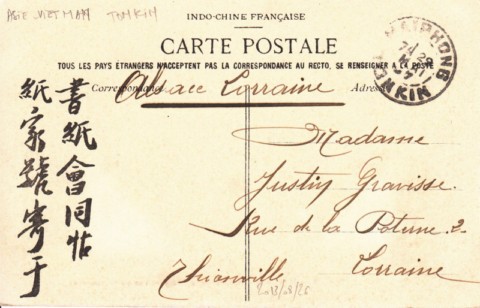 ASIE VIET NAM TONKIN
INDO-CHINE FRANÇAISE
CARTE POSTALE
TOUS LES PAYS ÉTRANGERS N'ACCEPTENT PAS LA CORRESPONDANCE AU RECTO, SE RENSEIGNER A LA POSTE
Correspondance
Adresse
Alsace Lorraine
HAIPHONG
TONKIN
Madame
Justin Gravisse.
Rue de la Poterne 2
Thionville
Lorraine
書紙會同帖
紙家號寄于